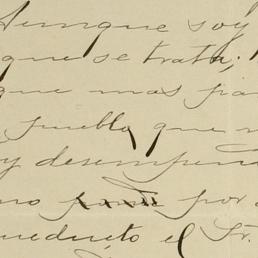 Aunque soy
que se trata;
que mas par
pueblo que n
y desempeñ
no por
el Sr.